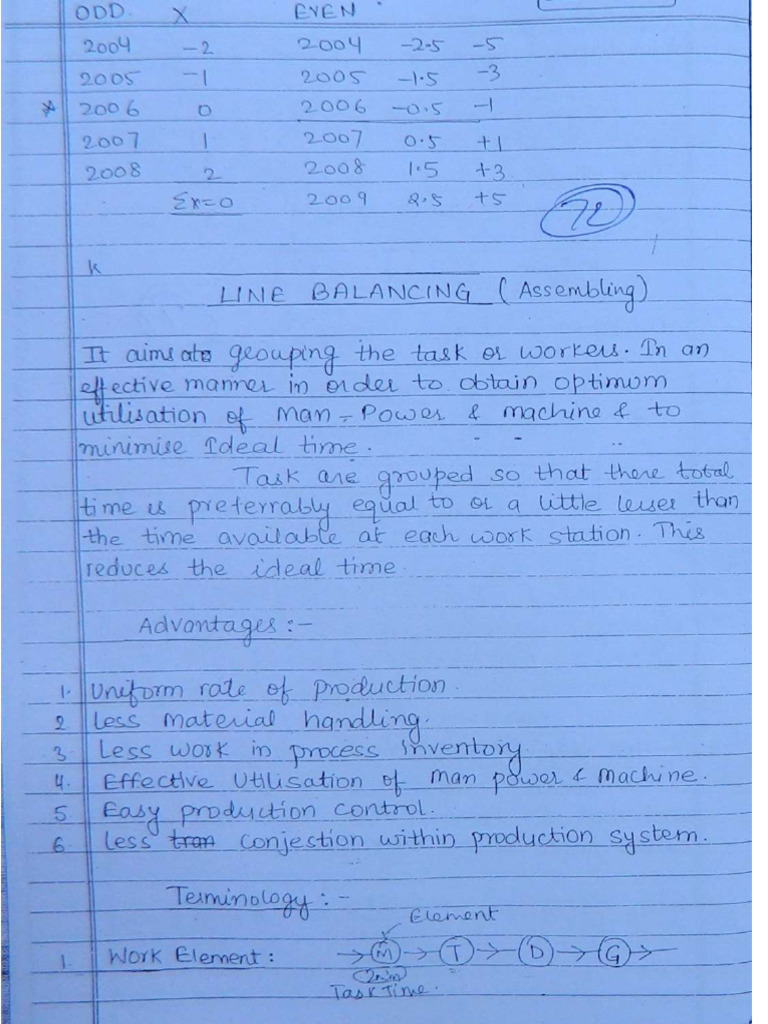 ODD. X EVEN
2004 -2 2004 -2.5 -5
2005 -1 2005 -1.5 -3
* 2006 0 2006 -0.5 -1
2007 1 2007 0.5 +1
2008 2 2008 1.5 +3
Σx=0 2009 2.5 +5
72
k
LINE BALANCING (Assembling)
It aims ato grouping the task or workers. In an
effective manner in order to obtain optimum
utilisation of man-Power & machine & to
minimise Ideal time.
Task are grouped so that there total
time is preferrably equal to or a little lesser than
the time available at each work station. This
reduces the ideal time.
Advantages :-
1. Uniform rate of production.
2 Less material handling.
3. Less work in process inventory
4. Effective Utilisation of man power & machine.
5 Easy production control.
6. Less tran conjestion within production system.
Terminology :-
Element
1. Work Element : → M → T → D → G →
2min
Task Time.